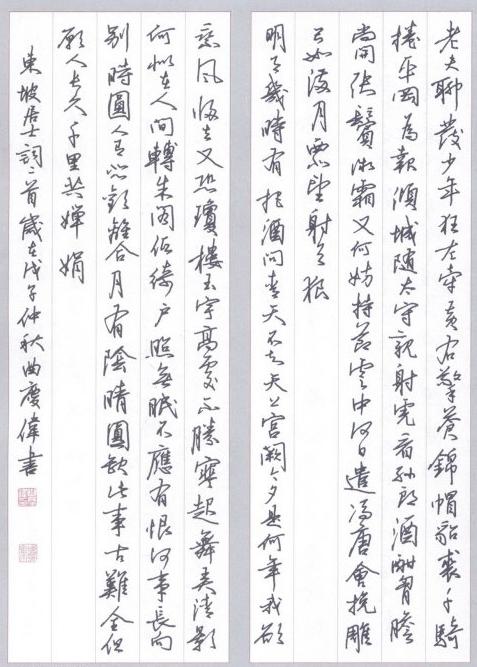 老夫聊發少年狂左牽黃右擎蒼錦帽貂裘千騎
捲平岡為報傾城隨太守親射虎看孫郎酒酣胸膽
尚開張鬢微霜又何妨持節雲中何日遣馮唐會挽雕
弓如滿月西北望射天狼
明月幾時有把酒問青天不知天上宮闕今夕是何年我欲
乘風歸去又恐瓊樓玉宇高處不勝寒起舞弄清影
何似在人間轉朱閣低綺戶照無眠不應有恨何事長向
別時圓人有悲歡離合月有陰晴圓缺此事古難全但
願人長久千里共嬋娟
東坡居士詞二首歲在戊子仲秋曲慶偉書